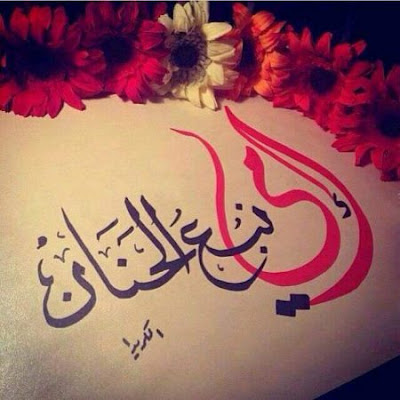 أمي نبعُ الحَنَانْ